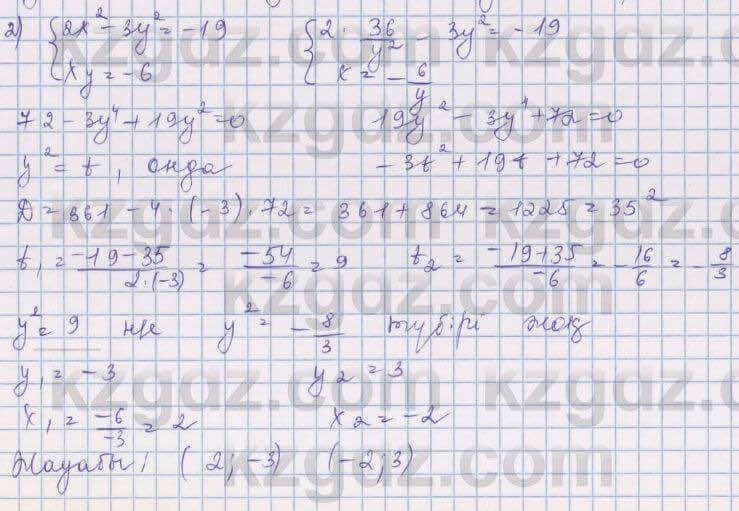 2) { 2x² - 3y² = -19   { 2 · 36/y² - 3y² = -19
{ xy = -6   { x = - 6/y
72 - 3y⁴ + 19y² = 0   19y² - 3y⁴ + 72 = 0
y² = t, онда   -3t² + 19t + 72 = 0
D = 361 - 4 · (-3) · 72 = 361 + 864 = 1225 = 35²
t₁ = -19-35/2·(-3) = -54/-6 = 9   t₂ = -19+35/-6 = -16/6 = -8/3
y² = 9 не y² = -8/3 түбірі жоқ
y₁ = -3   y₂ = 3
x₁ = -6/-3 = 2   x₂ = -2
Жауабы: (2; -3) (-2; 3)
kzgdz.com